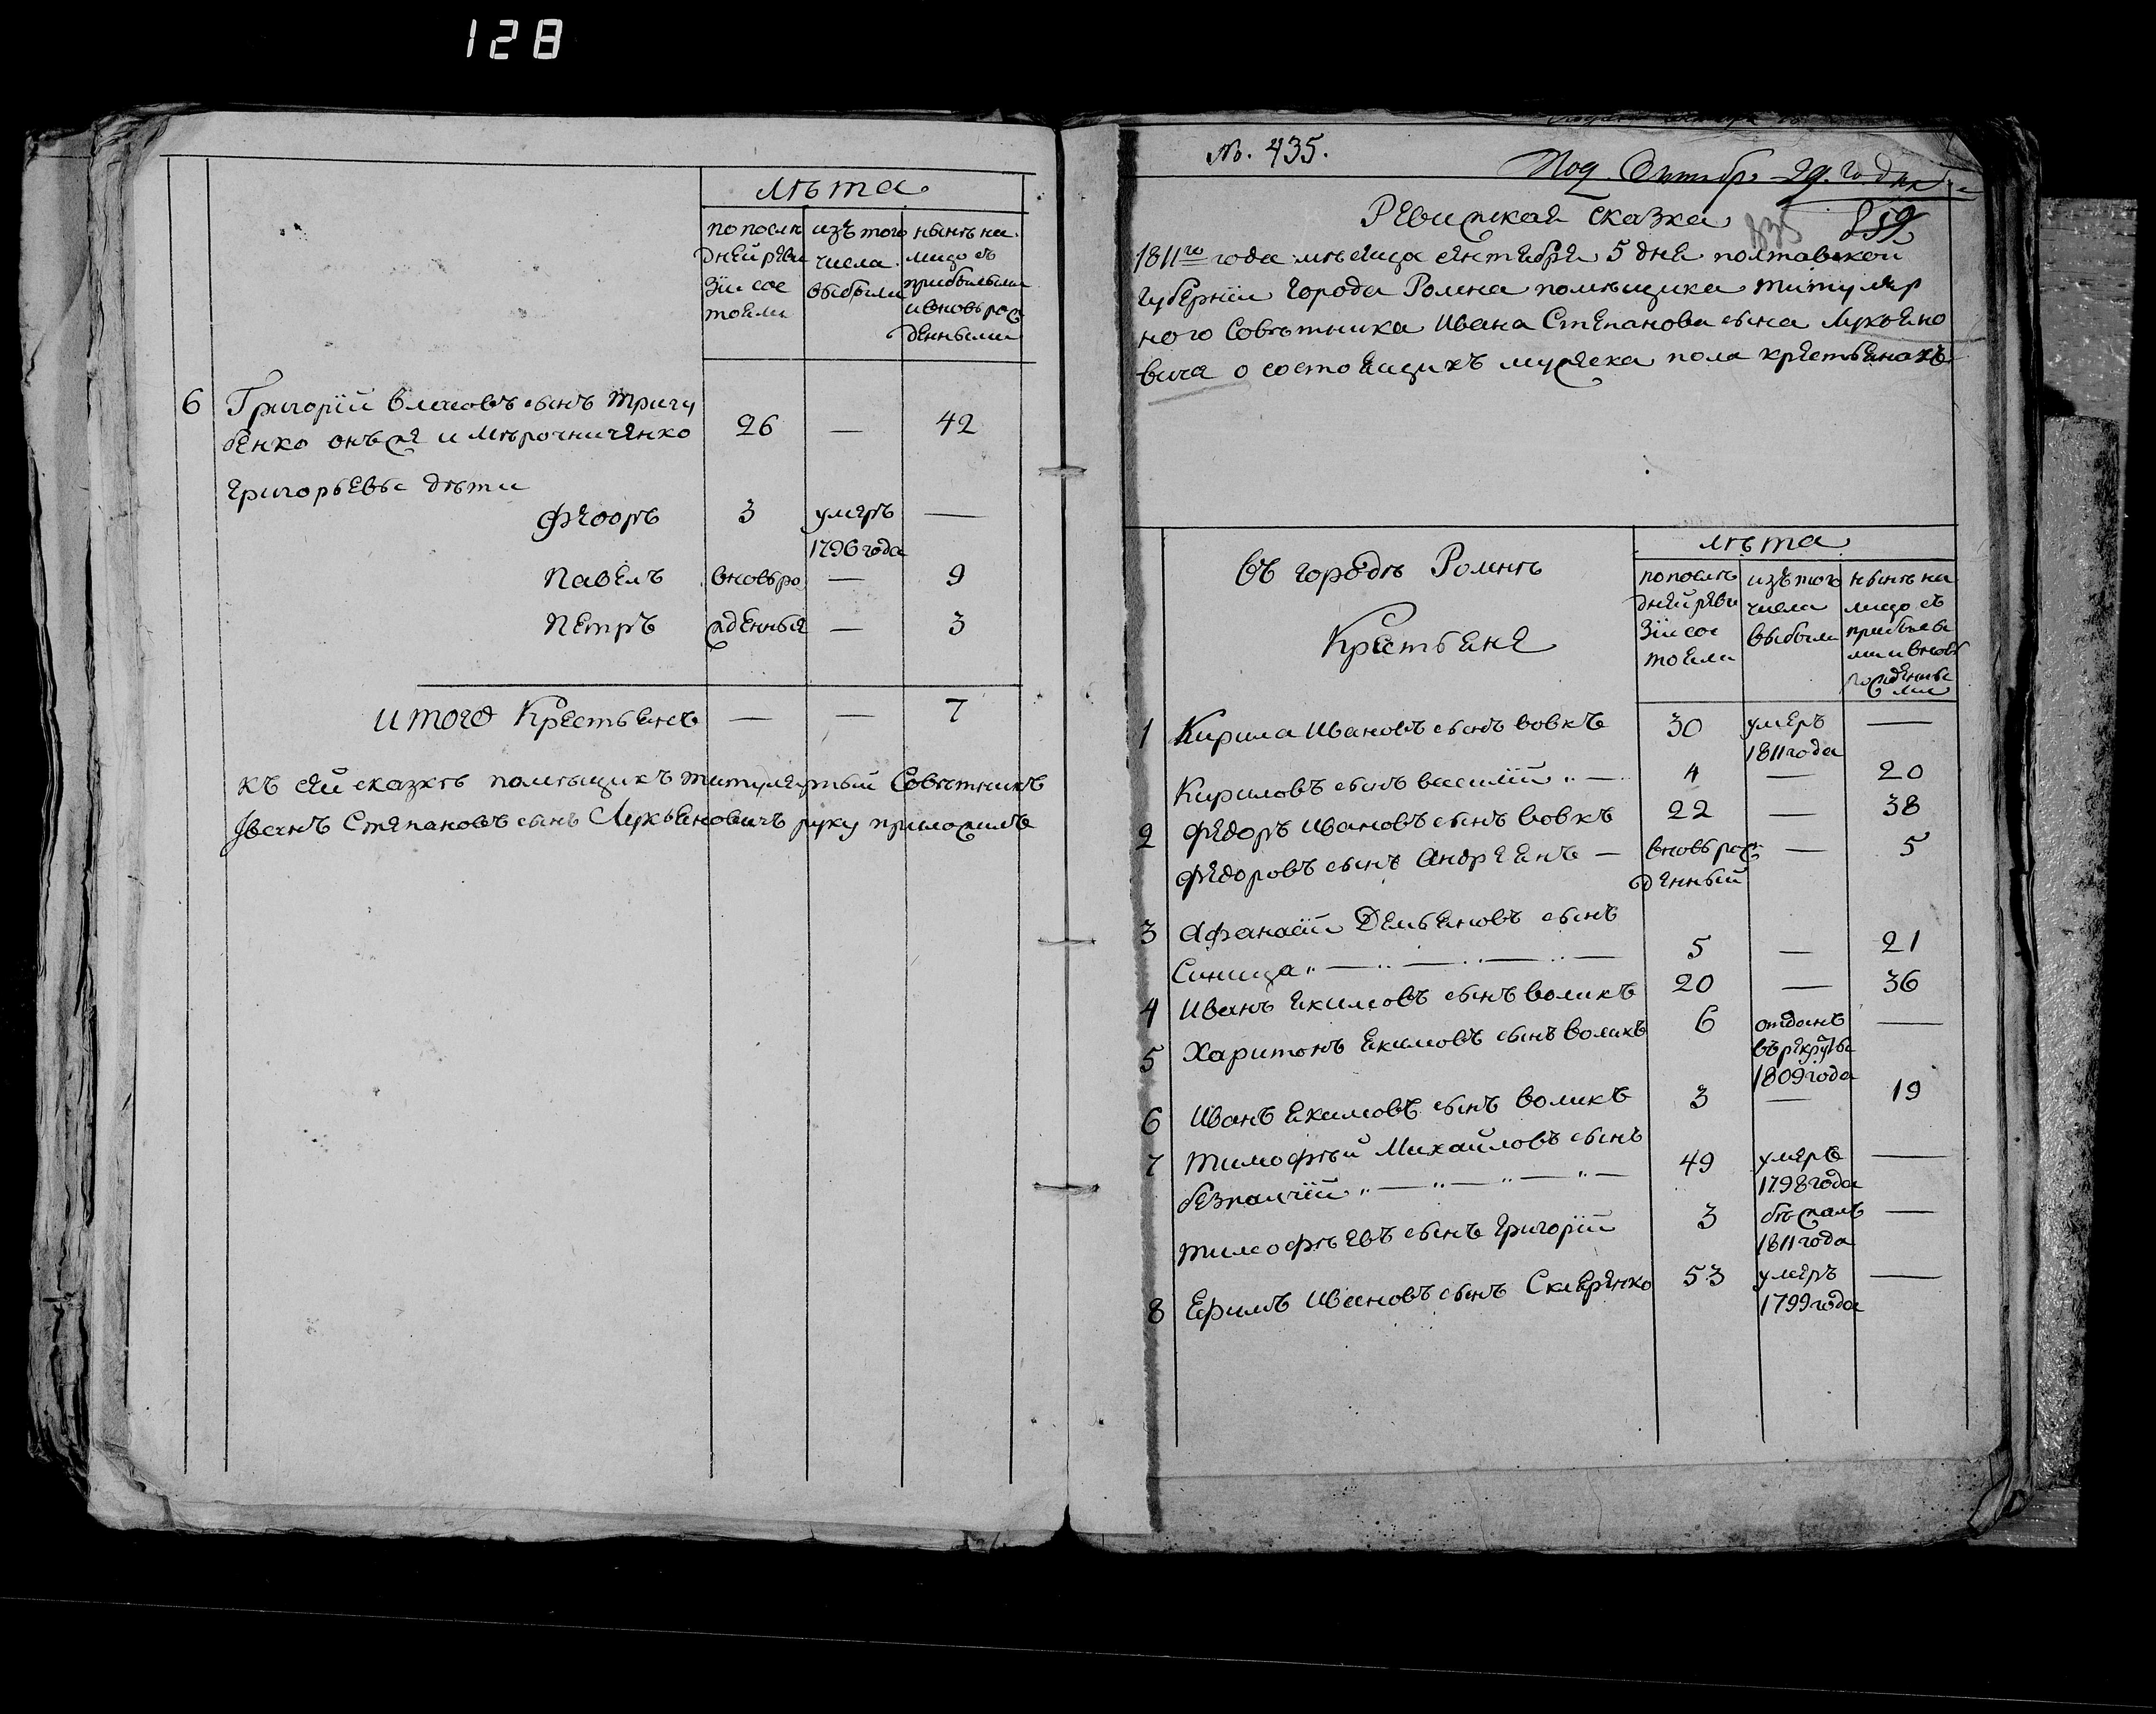 128
лѣта
по послѣ изъ того нынѣ на
дней реви числа лицо съ
зіи сос выбыли прибылыми
тояли и вновь рож
денными
6 Григорій Власовъ сынъ Тригу
бенко онъ же и Мѣрочниченко 26 — 42
Григорьевы дѣти
Федоръ 3 умеръ —
1796 года
Павелъ вновь ро — 9
Петръ жденныя — 3
итого Крестьянъ — — 7
къ сей сказкѣ помѣщикъ титулярный Совѣтникъ
Иванъ Степановъ сынъ Лукьяновичъ руку приложилъ
№. 435.
Под. Октябр. 29. го дня
Ревижская сказка 835 859
1811го года мѣсяца сентября 5 дня полтавской
губерніи города Ромна помѣщика титуляр
ного Совѣтника Ивана Степанова сына Лукьяно
вича о состоящихъ мужеска пола крестьянахъ
лѣта
въ городѣ Ромнѣ
Крестьяня
по послѣ изъ того нынѣ на
дней реви числа лицо съ
зіи сос выбыли прибылы
тояли ми и вновь
рожденны
ми
1 Кирила Ивановъ сынъ вовкъ 30 умеръ —
1811 года
Кириловъ сынъ василій „ — 4 — 20
2 Федоръ Ивановъ сынъ вовкъ 22 — 38
Федоровъ сынъ Андреянъ — вновь рож — 5
денный
3 Афанасій Демьяновъ сынъ
Синица „ — „ — „ — „ — 5 — 21
4 Иванъ Якимовъ сынъ воликъ 20 — 36
5 Харитонъ Якимовъ сынъ воликъ 6 отданъ —
въ рекруты
1809 года
6 Иванъ Якимовъ сынъ воликъ 3 — 19
7 Тимофѣй Михайловъ сынъ
безпалчій „ — „ — „ — „ — 49 умеръ —
1798 года
Тимофѣевъ сынъ Григорій 3 бѣжалъ —
1811 года
8 Ефимъ Ивановъ сынъ Скляренко 53 умеръ —
1799 года